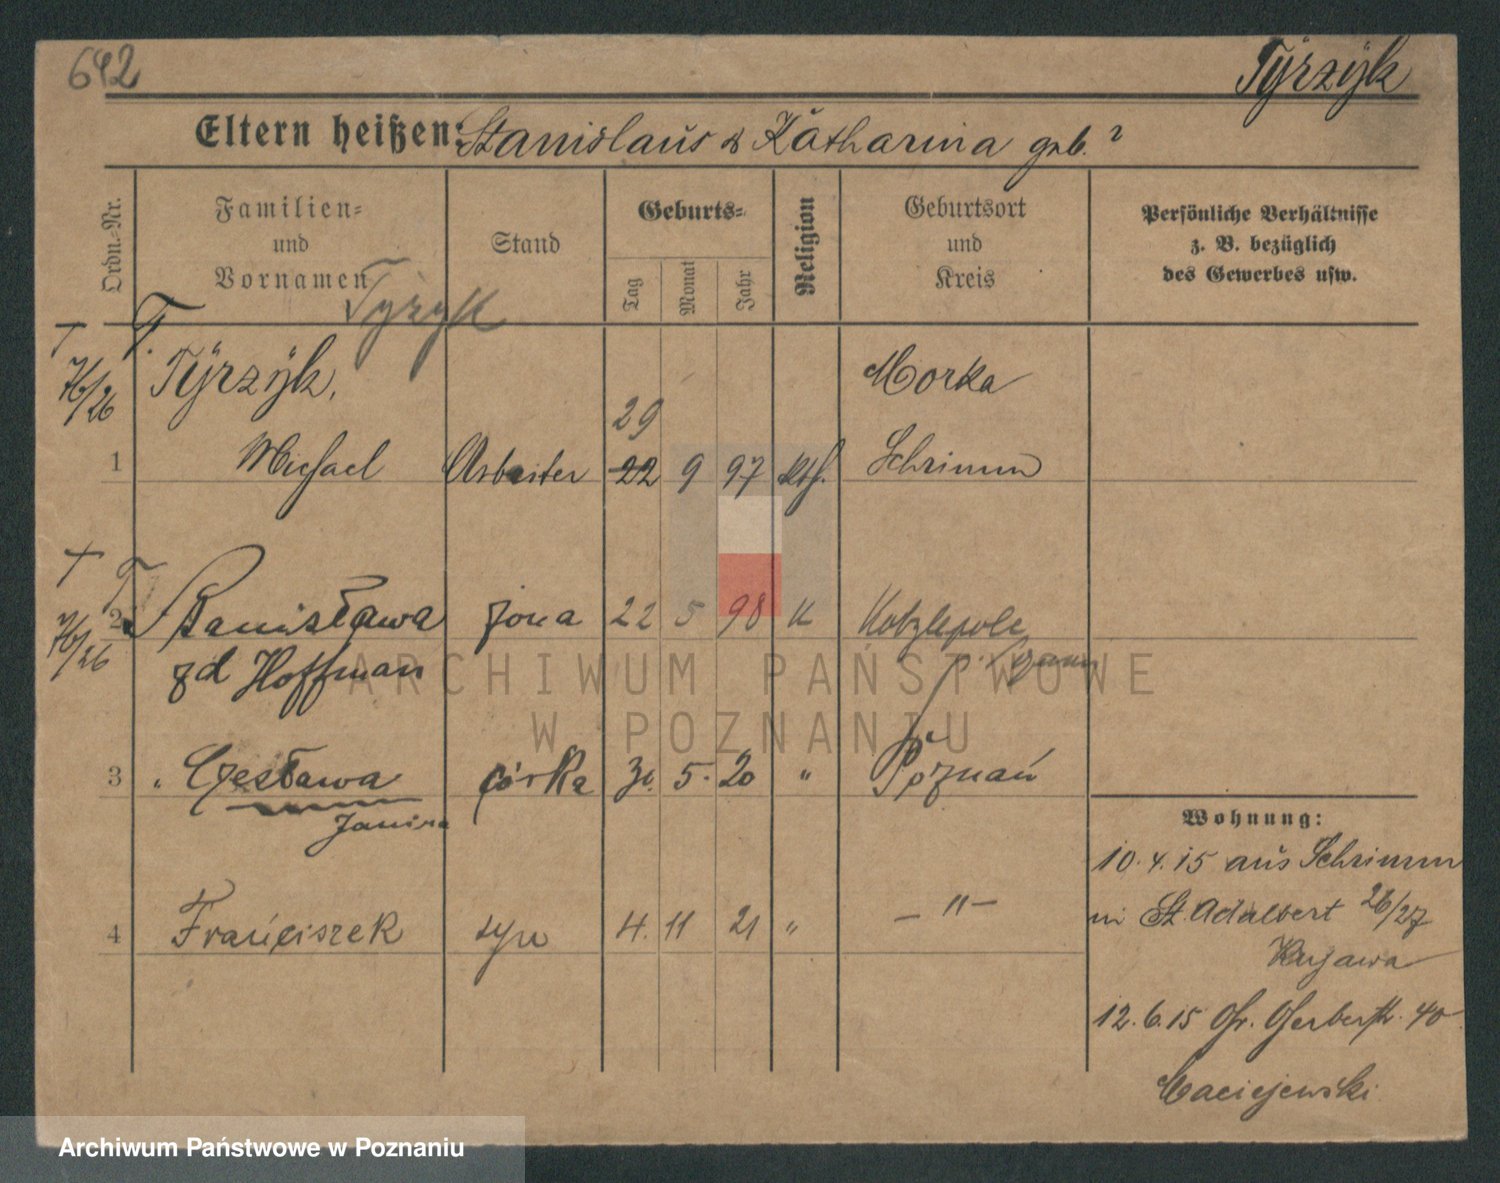 642
Tÿrzÿk
Eltern heißen: Stanislaus & Katharina geb. ?
Ordn.-Nr.
Familien-
und
Vornamen
Tyrzyk
Stand
Geburts-
Tag
Monat
Jahr
Religion
Geburtsort
und
Kreis
Persönliche Verhältnisse
z. B. bezüglich
des Gewerbes usw.
T.
Tÿrzÿk,
Morka
29
1 Michael Arbeiter 22 9 97 kth. Schrimm
T
2 Stanisława żona 22 5 98 K
zd Hoffman
3 " Czesława córka 30. 5. 20 " Poznań
Janina
Wohnung:
10.4.15 aus Schrimm
in St. Adalbert 26/27
Kujawa
4 Franciszek syn 4. 11 21 " — " —
12.6.15 Gr. Gerberstr. 40
Maciejewski
ARCHIWUM PAŃSTWOWE
W POZNANIU
Archiwum Państwowe w Poznaniu